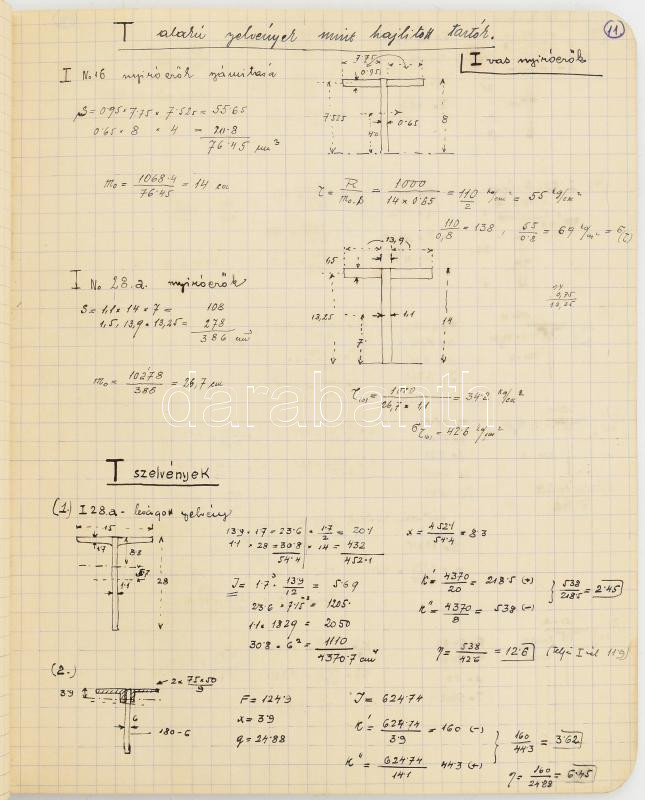 T alakú szelvények mint hajlított tartók.
11
I vas nyíróerők
I No 16 nyíróerők számítása
S = 0.95 × 7.75 × 7.525 = 55.65
0.65 × 8 × 4 = 20.8
76.45 cm³
7.75
0.95
7.525
40
0.65
8
m₀ = 1068.4 / 76.45 = 14 cm
τ = R / m₀.β = 1000 / 14 × 0.65 = 110 / 2 kg/cm² = 55 kg/cm²
110 / 0,8 = 138, 55 / 0.8 = 69 kg/cm² = σ(τ)
I No 28.a. nyíróerők
S = 1,1 × 14 × 7 = 108
1,5 × 13,9 × 13,25 = 278
386 cm³
13,9
1,5
13,25
1,1
7
14
m₀ = 10278 / 386 = 26,7 cm
τ(o) = 1000 / 26,7 × 1,1 = 34.2 kg/cm²
στ(o) = 42.6 kg/cm²
darabanth
T szelvények
(1.) I 28.a - levágott szelvény
15
1.7
8.3
5.7
1.1
28
13.9 × 1.7 = 23.6 × 1.7 / 2 = 20.1
1.1 × 28 = 30.8 × 14 = 432
54.4 452.1
x = 452.1 / 54.4 = 8.3
I = 1.7³ · 13.9 / 12 = 5.69
23.6 × 7.15² = 1205.
1.1 × 1829 = 2050
30.8 × 6² = 1110
4370.7 cm⁴
K' = 4370 / 20 = 218.5 (+)
K'' = 4370 / 8 = 538 (-)
538 / 218.5 = 2.45
η = 538 / 42.6 = 12.6 (teljes I nél 11.9)
(2.)
3.9
2 × 75×50 / 9
6
180 - 6
F = 124.9
x = 3.9
q = 24.88
I = 624.74
K' = 624.74 / 3.9 = 160 (-)
K'' = 624.74 / 14.1 44.3 (+)
160 / 44.3 = 3.62
η = 160 / 24.88 = 6.45